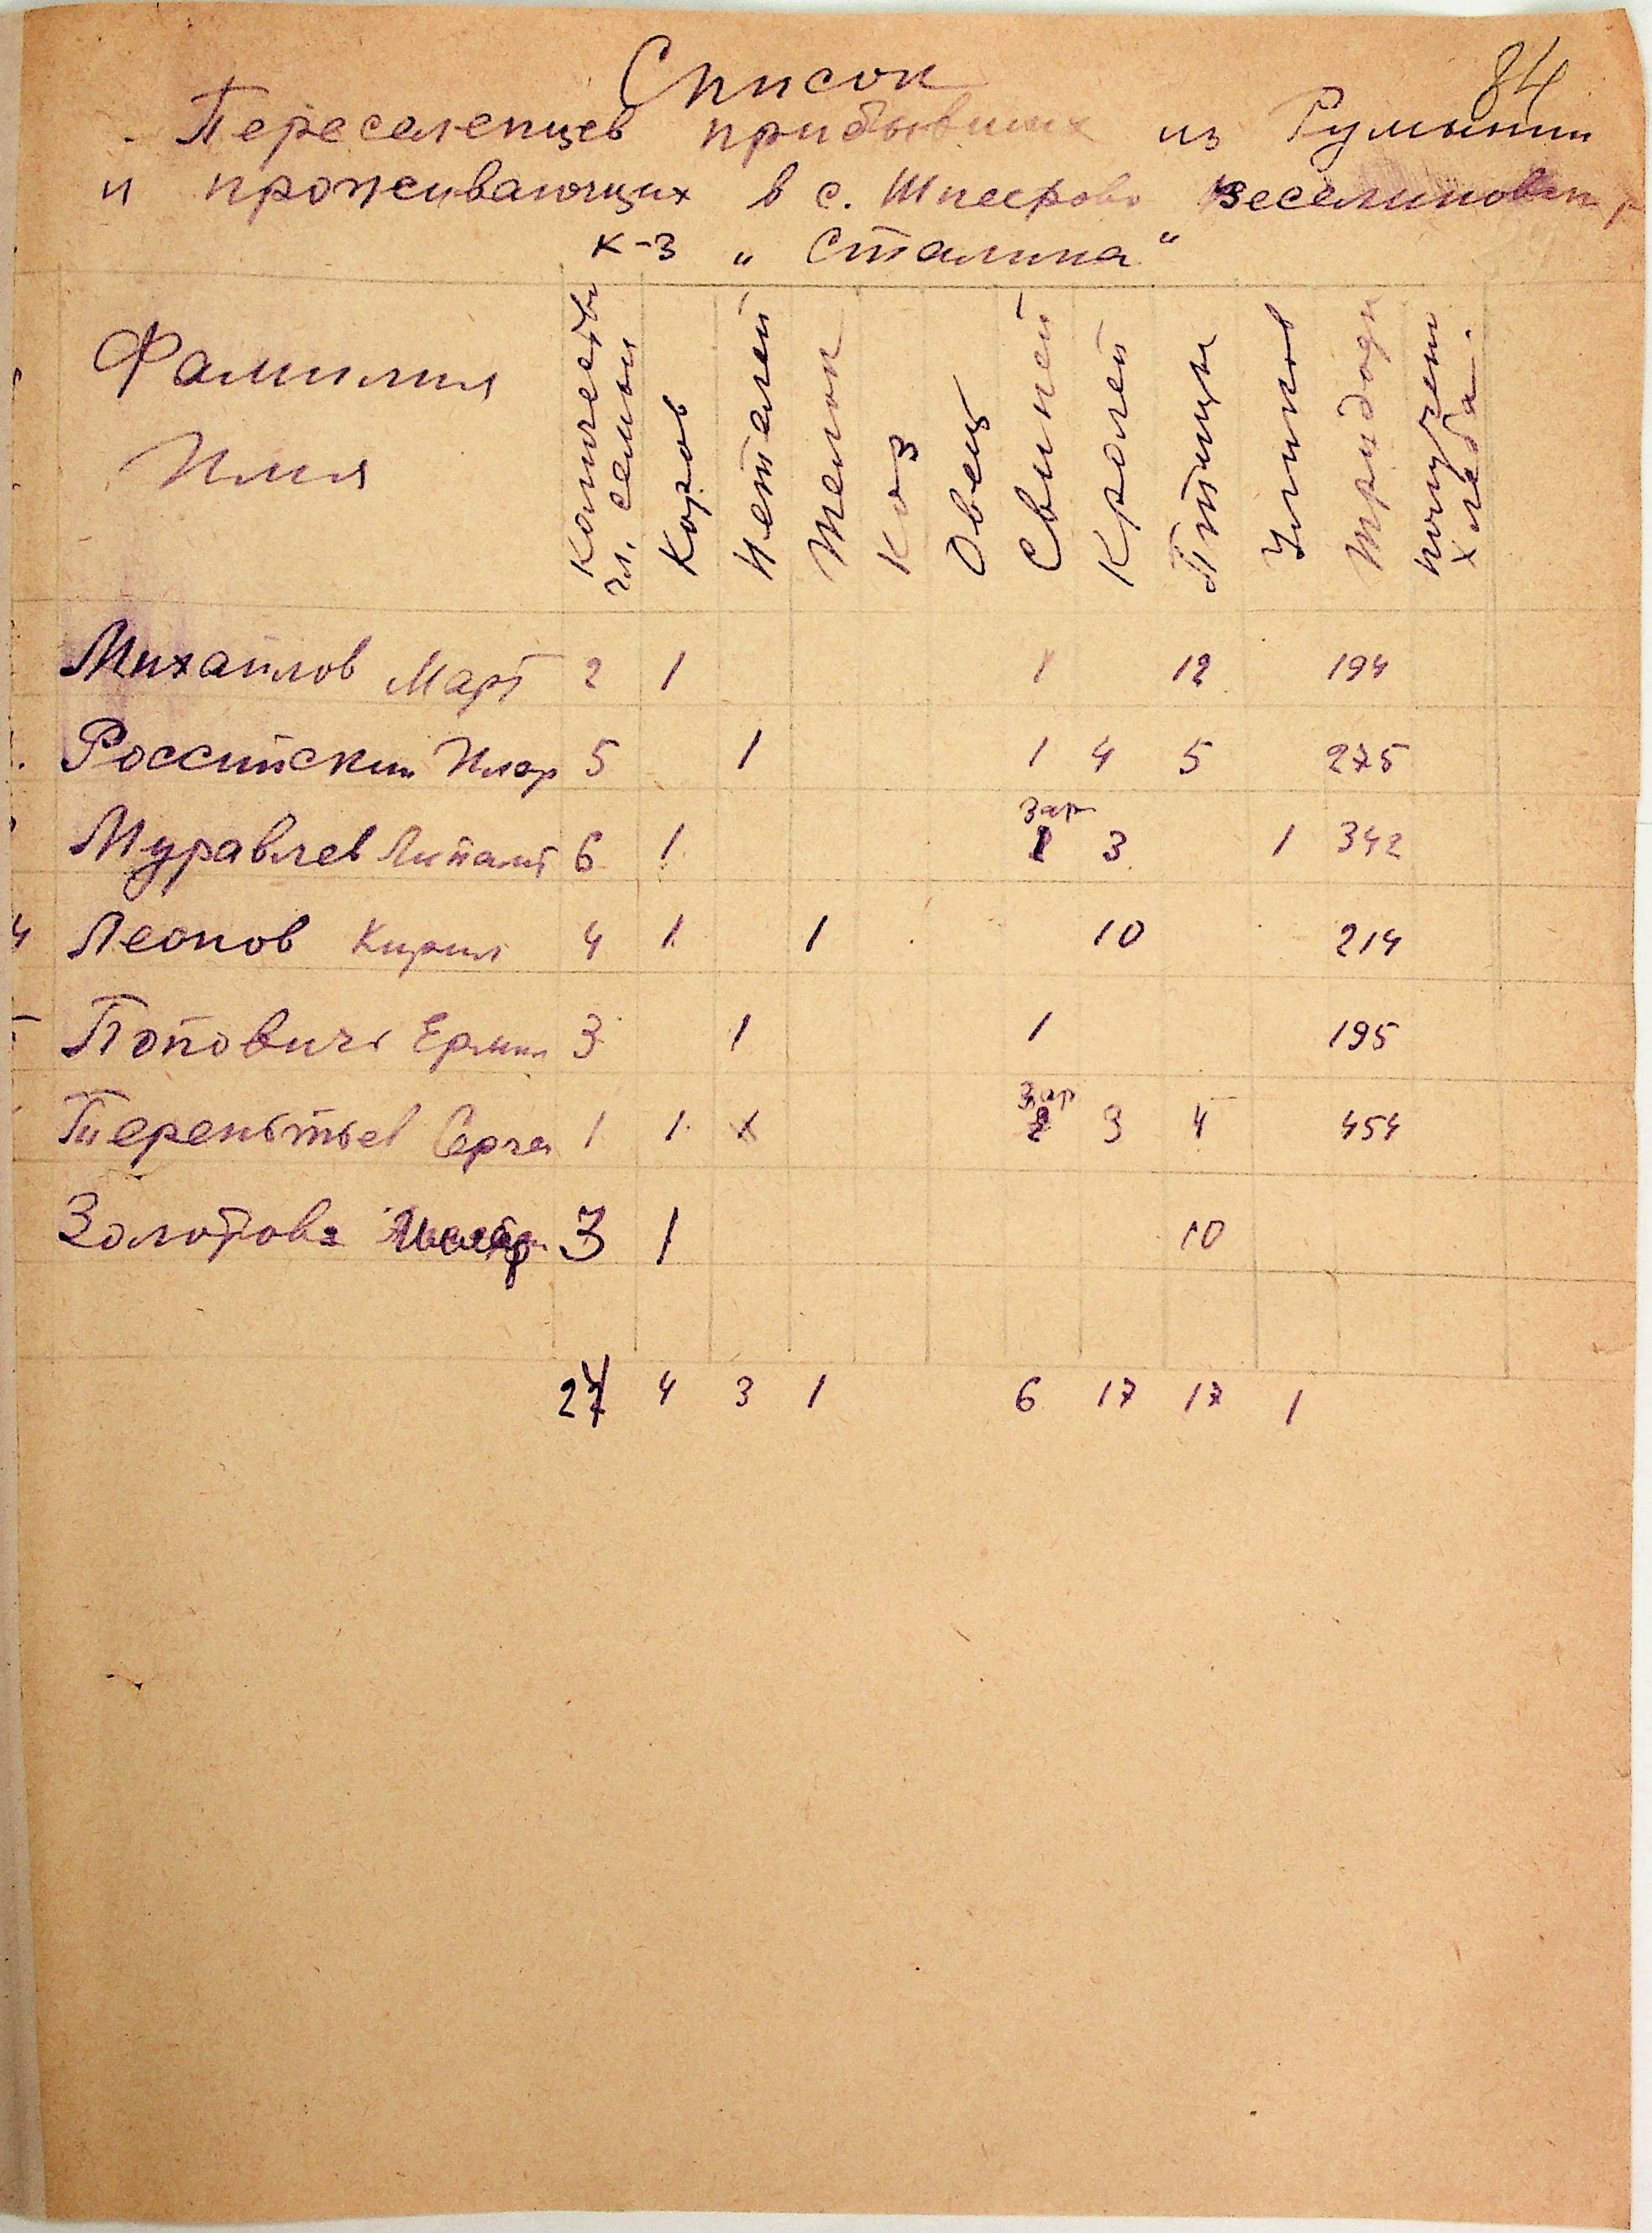 84
Список
Переселенцев прибывших из Румынии
и проживающих в с. Шпеерово Веселиновск р
к-з „Сталина"
Фамилия Имя Количество чл. семьи Коров Нетелей Телок Коз Овец Свиней Кролей Птицы Ульков Трудодн получен хлеба.
Михайлов Март 2 1 1 12 194
Российский Илар 5 1 1 4 5 275
зар
Муравлев 6 1 1 3 1 342
4 Леонов Кирил 4 1 1 10 214
Поповичь Ермил 3 1 1 195
зар
Терентьев Серге 1 1 х 2 3 4 454
Золотова 3 1 10
27 4 3 1 6 17 17 1